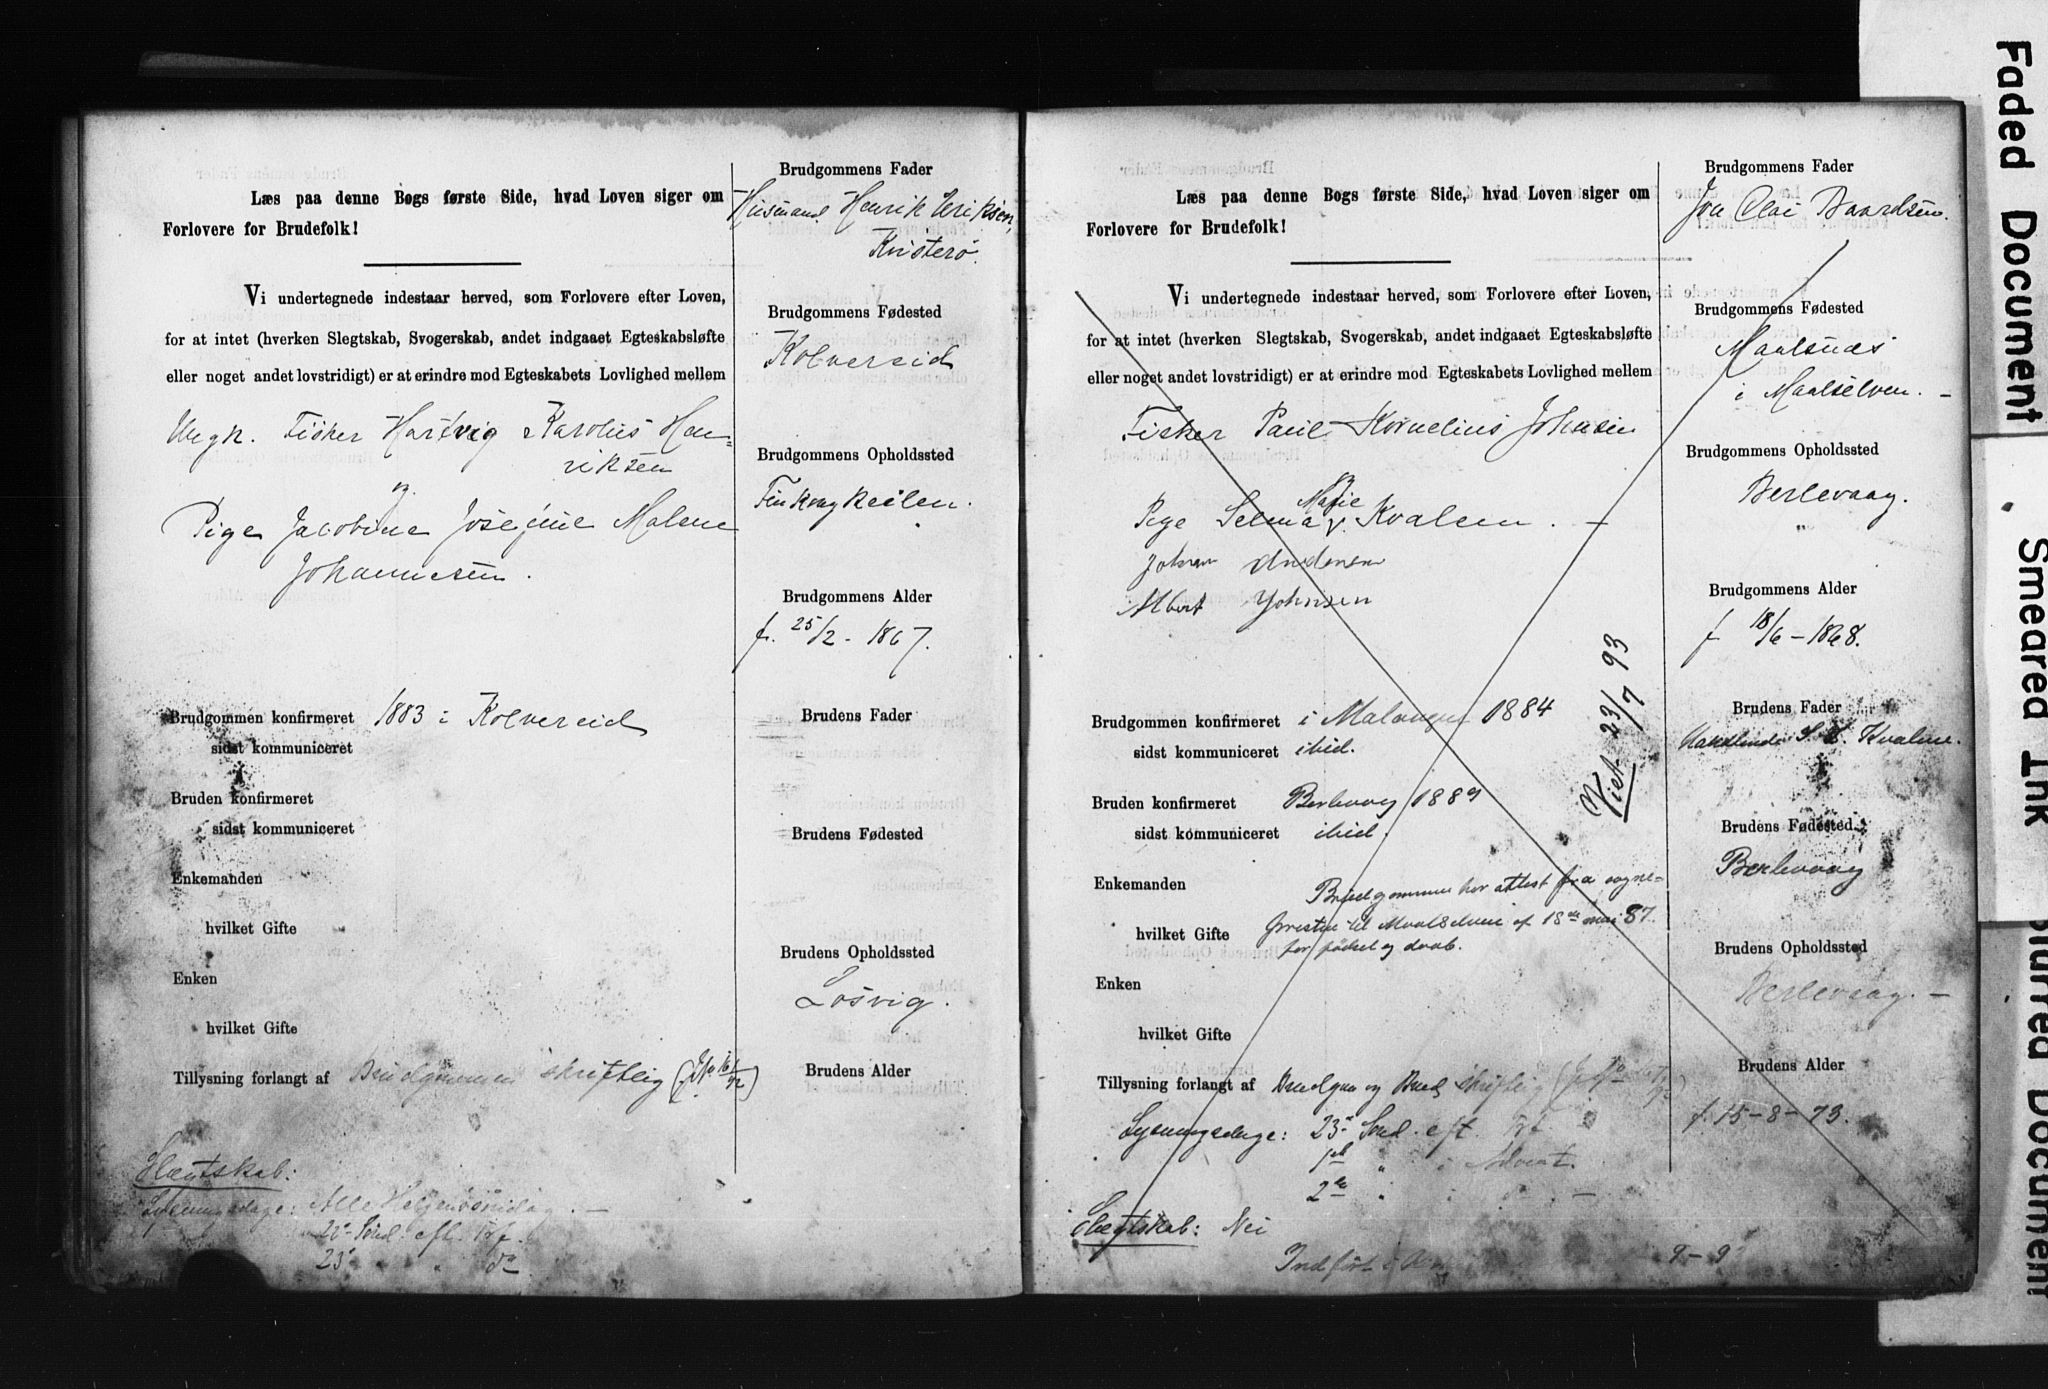 Læs paa denne Bogs første Side, hvad Loven siger om
Forlovere for Brudefolk!
Vi undertegnede indestaar herved, som Forlovere efter Loven,
for at intet (hverken Slegtskab, Svogerskab, andet indgaaet Egteskabsløfte
eller noget andet lovstridigt) er at erindre mod Egteskabets Lovlighed mellem
Ungk. Fisker Hartvig Karolus Hen=
riksen
og
Pige Jacobine Josefine Malene
Johannesen.
Brudgommen konfirmeret 1883 i Kolvereid
sidst kommuniceret
Bruden konfirmeret
sidst kommuniceret
Enkemanden
hvilket Gifte
Enken
hvilket Gifte
Tillysning forlangt af Brudgommen skriftlig
Slægtskab:
Lysningsdage: Alle Helgensøndag. —
22de Sønd. eft. Trf.
23 " do
Brudgommens Fader
Husmand Henrik Eriksen,
Kvisterø.
Brudgommens Fødested
Kolvereid
Brudgommens Opholdssted
Finkongkeilen.
Brudgommens Alder
f. 25/2 - 1867.
Brudens Fader
Brudens Fødested
Brudens Opholdssted
Losvig.
Brudens Alder
Læs paa denne Bogs første Side, hvad Loven siger om
Forlovere for Brudefolk!
Vi undertegnede indestaar herved, som Forlovere efter Loven,
for at intet (hverken Slegtskab, Svogerskab, andet indgaaet Egteskabsløfte
eller noget andet lovstridigt) er at erindre mod Egteskabets Lovlighed mellem
Fisker Paul Kornelius Johnsen
og
Marie
Pige Selma Kvalsen. —
Johan Andersen
Albert Johnsen
Viet 23/7 93
Brudgommen konfirmeret i Malangen 1884
sidst kommuniceret ibid.
Bruden konfirmeret Berlevaag 1889
sidst kommuniceret ibid.
Enkemanden
Brudgommen har attest fra sogne=
hvilket Gifte
presten til Maalselven af 18de mai 87.
for fødsel og daab.
Enken
hvilket Gifte
Tillysning forlangt af Brudgom og Brud skriftlig
Lysningsdage: 23de Sønd. eft. Trf.
1ste " i Advent.
2den " i do. —
Slægtskab: Nei
Indført i
Brudgommens Fader
Jon Olai Baardsen.
Brudgommens Fødested
Maalsnæs
i Maalselven. —
Brudgommens Opholdssted
Berlevaag.
"
Brudgommens Alder
f. 18/6 - 1868.
Brudens Fader
Kvalsen.
Brudens Fødested
Berlevaag
Brudens Opholdssted
Berlevaag. —
Brudens Alder
f. 15-8-73.
Faded Document
Smeared Ink
Blurred Document